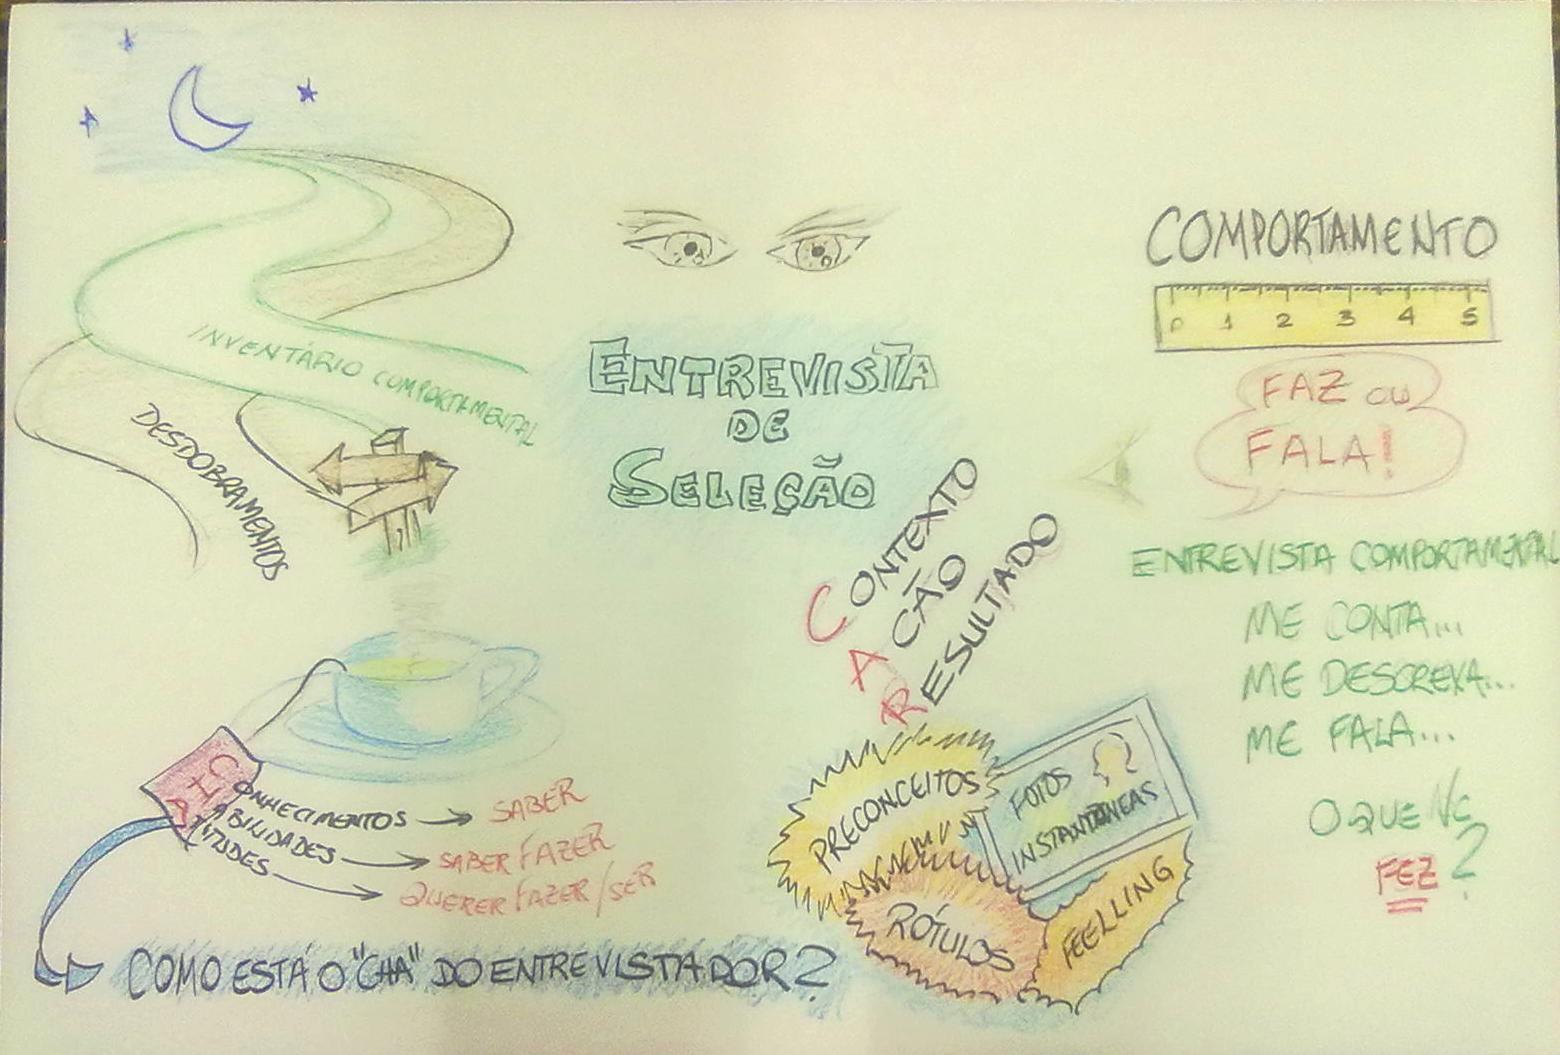 ENTREVISTA
DE
SELEÇÃO
INVENTÁRIO COMPORTAMENTAL
DESDOBRAMENTOS
CONHECIMENTOS → SABER
HABILIDADES → SABER FAZER
ATITUDES → QUERER FAZER/SER
COMO ESTÁ O "CHA" DO ENTREVISTADOR?
CONTEXTO
AÇÃO
RESULTADO
PRECONCEITOS
FOTOS
INSTANTÂNEAS
RÓTULOS
FEELLING
COMPORTAMENTO
0 1 2 3 4 5
FAZ OU
FALA!
ENTREVISTA COMPORTAMENTAL
ME CONTA...
ME DESCREVA...
ME FALA...
O QUE VC
FEZ?